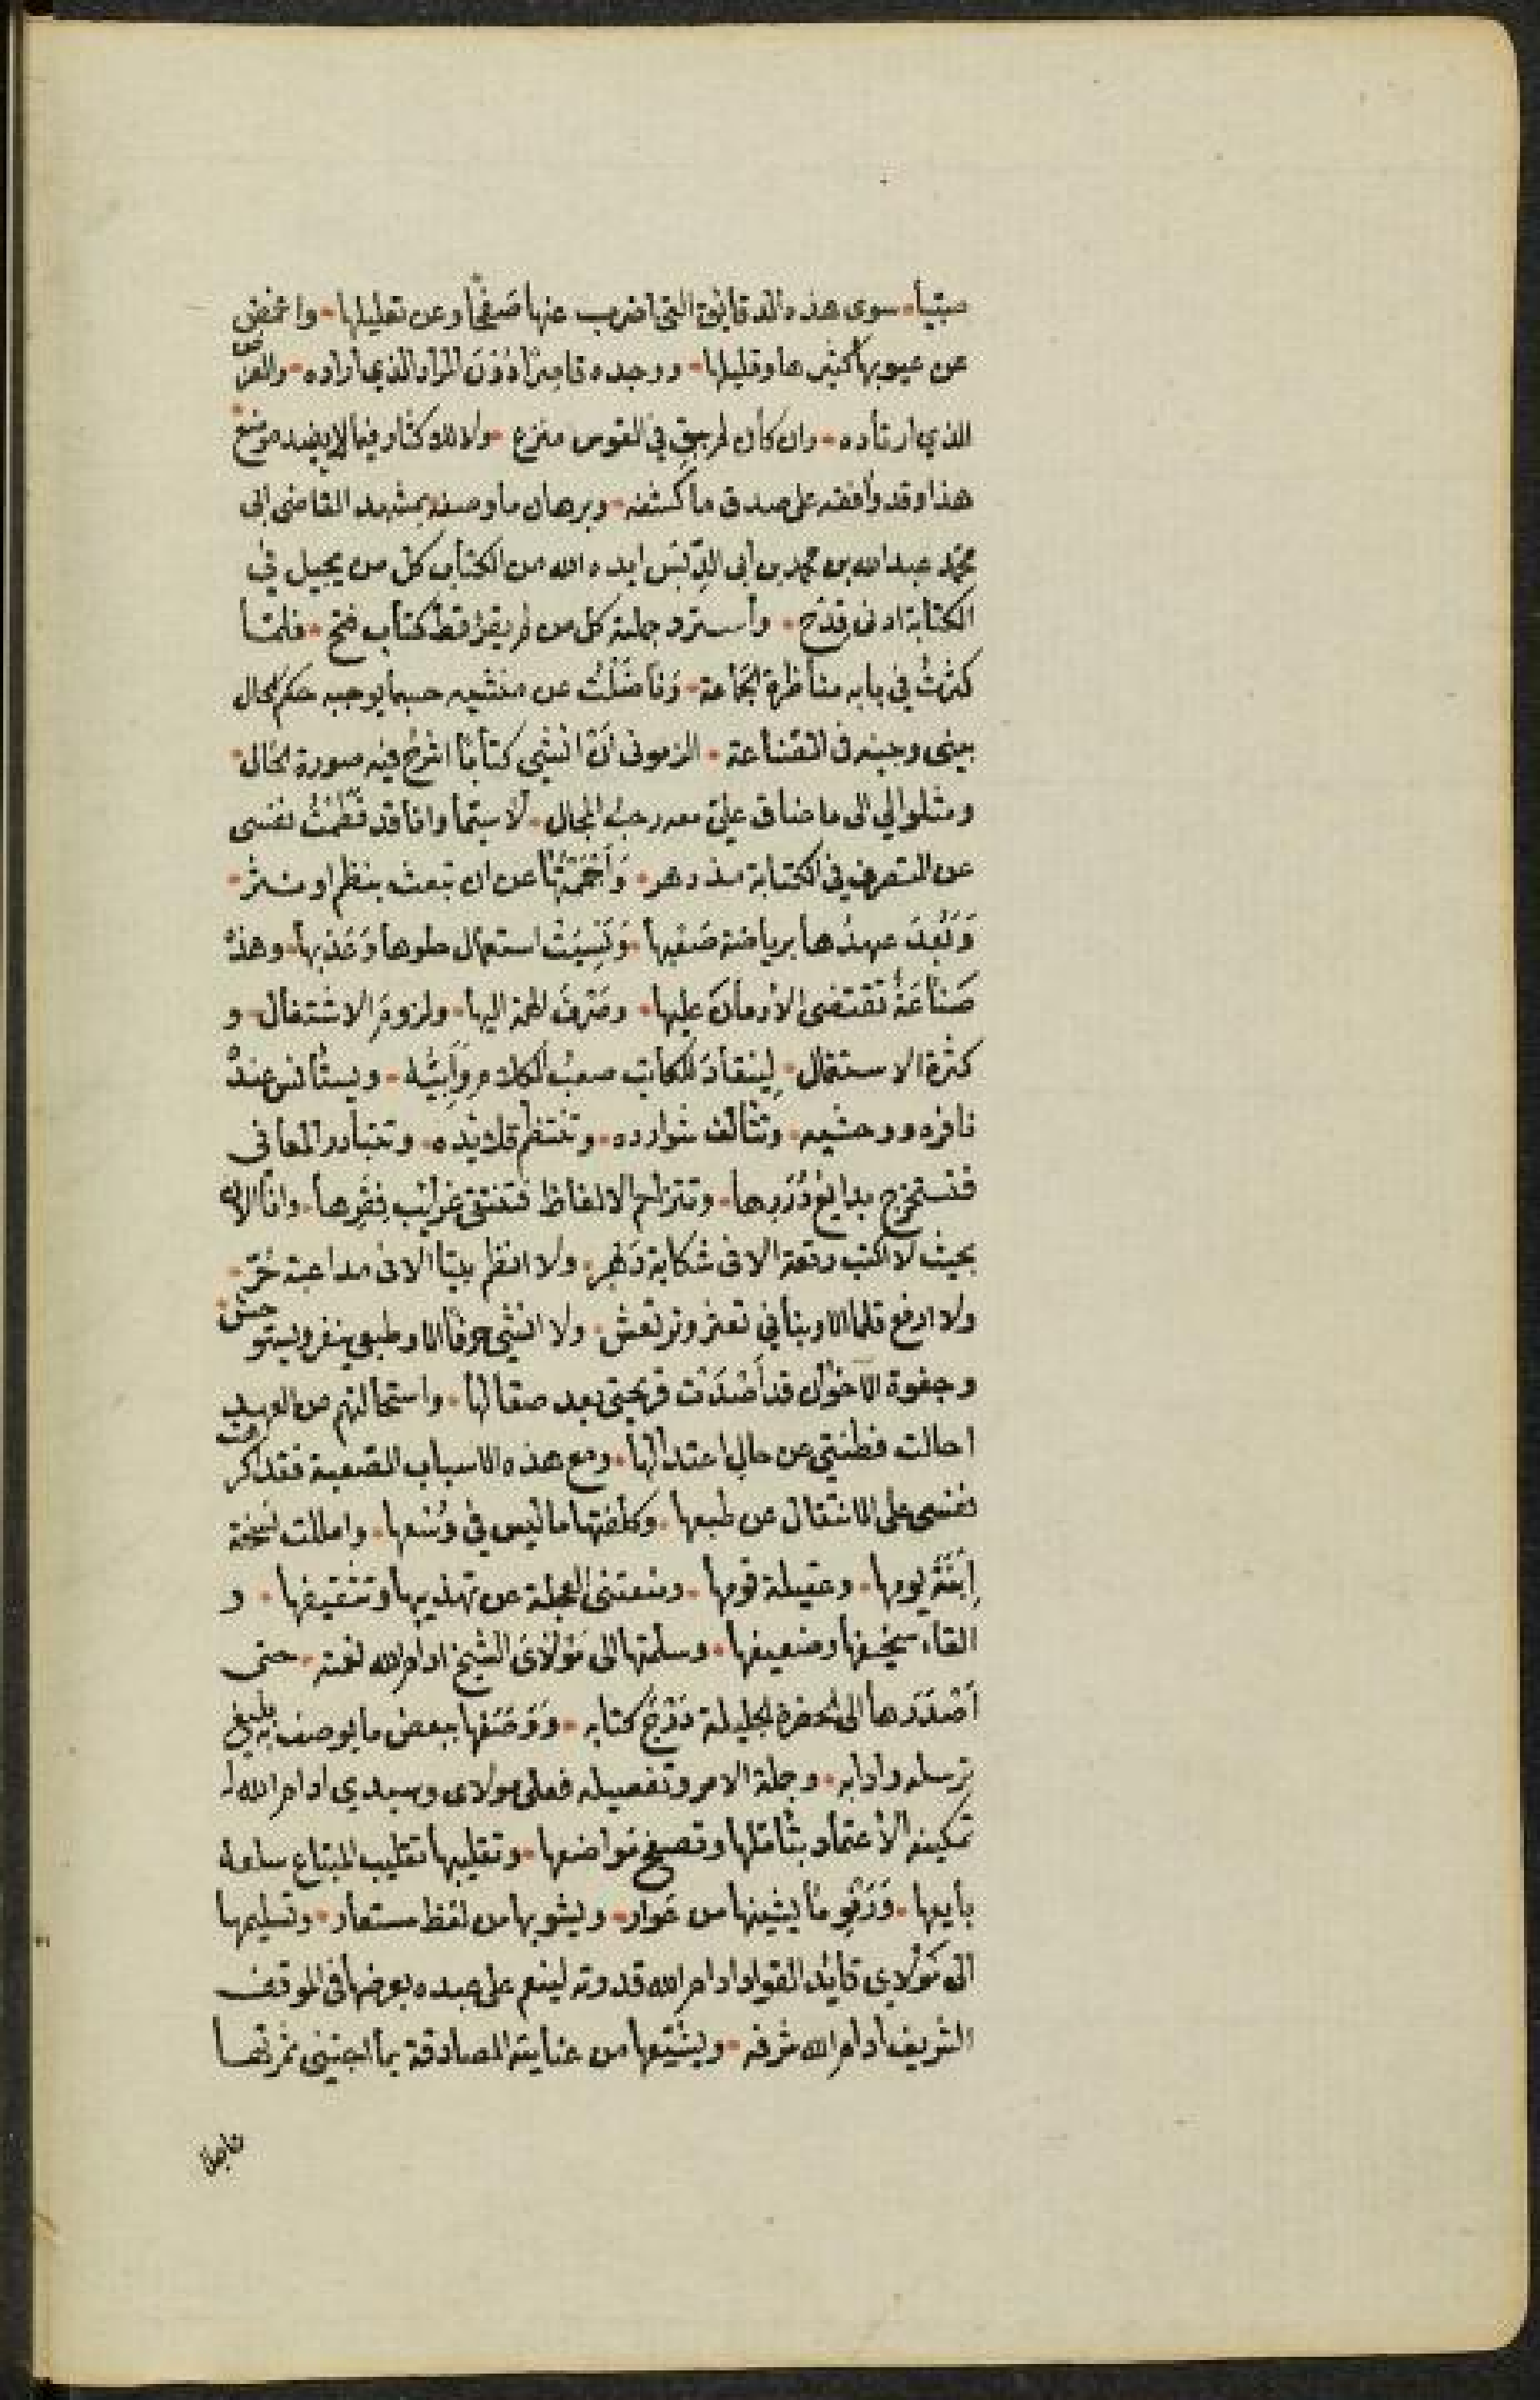 صبيا۔ سوى هذه الدقايق التى اضرب عنها صَفْحًا وعن تعليلها۔ واغضى
عن عيوبها كثيرها وقليلها۔ ووجده قاصِرًا دُوْنَ المراد الذي اراده۔ والغرض
الذي ارتاده۔ وان كان لم يبق في القوس منزع ۔ ولا للاكثار فيما لا يفيد موضع
هذا وقد وافقه على صدق ما كشفه۔ وبرهان ما وصفه بمشهد القاضى ابى
محمّد عبد الله بن محمد بن ابى ايده الله من الكتاب كل من يجيل فى
الكتابة ادنى قِدْح۔ واسترد جملة كل من لم يقرا قط كتاب فتح۔ فلمّا
كثرتْ في بابه مناظرة الجَمَاعة۔ وَنَاضَلْتُ عن منشيه حسبما يوجبه حكم الحال
بينى وبينه فى الصّناعة ۔ الزمونى اَنْ انشي كتابًا اشرح فيه صورة الحال۔
ومثلوا لي الى ما ضاق عليّ معه رحبُ المجال۔ لا سيّما وانا قد فَطَمْتُ نفسى
عن التصرف في الكتابة مذ دهر۔ وَاَجْمَمْتُهَا عن ان تبعث بنظم او نثر۔
وَبَعُدَ عهدُها برياضة صَعْبِها۔ وَنَسِيَتْ استعمال حلوها وَعَذبها۔ وهذه
صَنَاعَةٌ تقتضى الادمانَ عليها۔ وصَرْفَ الهمة اليها۔ ولزومَ الاشتغال۔ و
كثرة الاستعمال۔ لِينقادَ للكاتب صعبُ الكلام وَاَبِيُّه۔ ويستأنس عندهُ
نافره ووحشيه۔ وتتألف شوارده۔ وتنتظم قلايده۔ وتتبادر المعانى
فتستخرج بدايع دُرَرِها۔ وتتزاحم الالفاظ فتنتقى غرائب فِقَرِها۔ وانا الان
بحيث لا اكتب رقعة الا فى شكاية دَهْر۔ ولا انظم بيتا الا فى مداعبة حُرّ۔
ولا ارفع قلما الا وبنانى تعثر وترتعش۔ ولا انشي حرفًا الا وطبعي ينفر ويستوحش
وجفوة الاخوان قد اَصْدَئت قريحتى بعد صقالها۔ واستحالتهم عن العهد
احالت فطنتي عن حال اعتدالها۔ ومع هذه الاسباب الصّعبة فقد اكرهت
نفسى على الانتقال عن طبعها۔ وكلّفتها ما ليس في وُسْعها۔ واصلت نسخة
اِبْنَةُ يومها۔ وعقيلة قومها۔ ومنعتنى العجلة عن تهذيبها وتثقيفها ۔ و
القاء سخيفها وضعيفها۔ وسلمتها الى مَوْلَايَ الشيخ ادام الله نعمته۔ حتى
اَصْدَرَها الى الحضرة الجليلة دَرْجَ كتابه۔ وَوَصَفها ببعض ما يوصف به بليغ
ترسله وادابه۔ وجملة الامر وتفصيله فعلى مولاى وسيدي ادام الله
تمكينه الاعتماد بتأمّلها وتصفح مواضعها۔ وتقليبها تقليب المبتاع سلعة
بايعها۔ وَرَقْم ما يشينها من عَوار۔ ويشوبها من لفظ مستعار۔ وتسليمها
الى مَوْلَاي قايد القواد ادام الله قدرته لينعم على عبده بعرضها فى الموقف
الشريف ادام الله شرفه۔ ويشيّعها من عنايته الصادقة بما اجتني ثمرتها